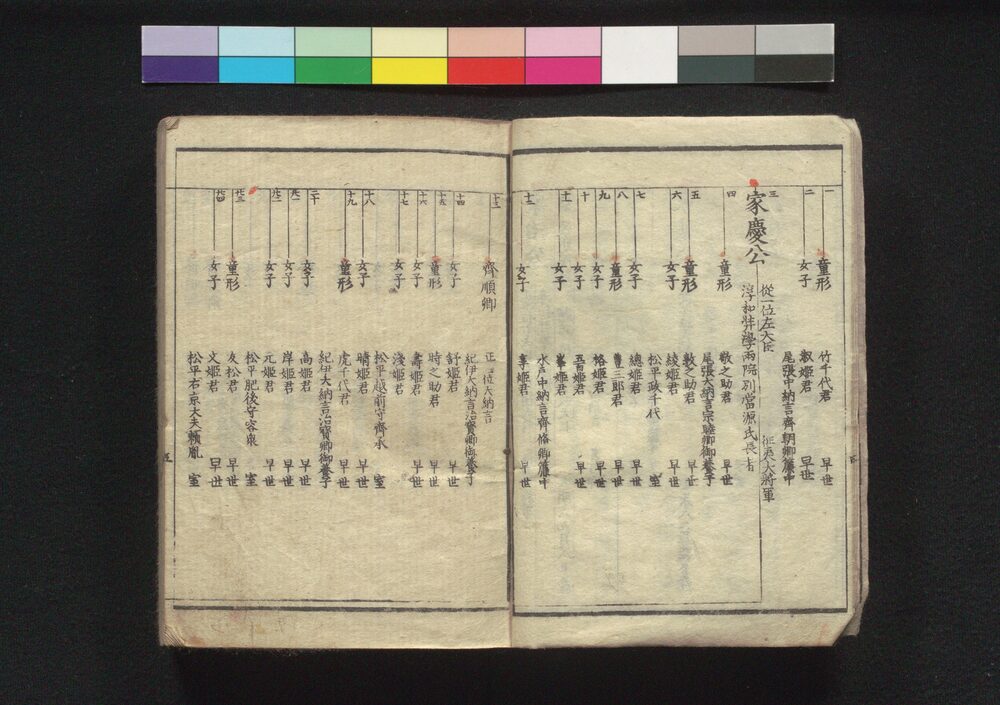 一
童形
竹千代君
早世
二
女子
淑姫君
早世
尾張中納言齊朝卿簾中
三
家慶公
從一位左大臣
征夷大將軍
淳和奨學兩院別當源氏長者
四
童形
敬之助君
早世
尾張大納言宗睦卿御養子
五
童形
敬之助君
早世
六
女子
綾姫君
早世
松平政千代
室
七
女子
總姫君
早世
八
童形
豊三郎君
早世
九
女子
格姫君
早世
十
女子
五百姫君
早世
十一
女子
峯姫君
早世
水戸中納言齊脩卿簾中
十二
女子
早世
十三
齊順卿
正二位大納言
紀伊大納言治寶卿御養子
十四
女子
舒姫君
早世
十五
童形
時之助君
早世
十六
女子
壽姫君
早世
十七
女子
淺姫君
松平越前守齊承
室
十八
女子
晴姫君
早世
十九
童形
虎千代君
早世
紀伊大納言治寶卿御養子
二十
女子
高姫君
早世
廿一
女子
岸姫君
早世
廿二
女子
元姫君
早世
松平肥後守容衆
室
廿三
童形
友松君
早世
廿四
女子
文姫君
早世
松平右京大夫頼胤
室
五